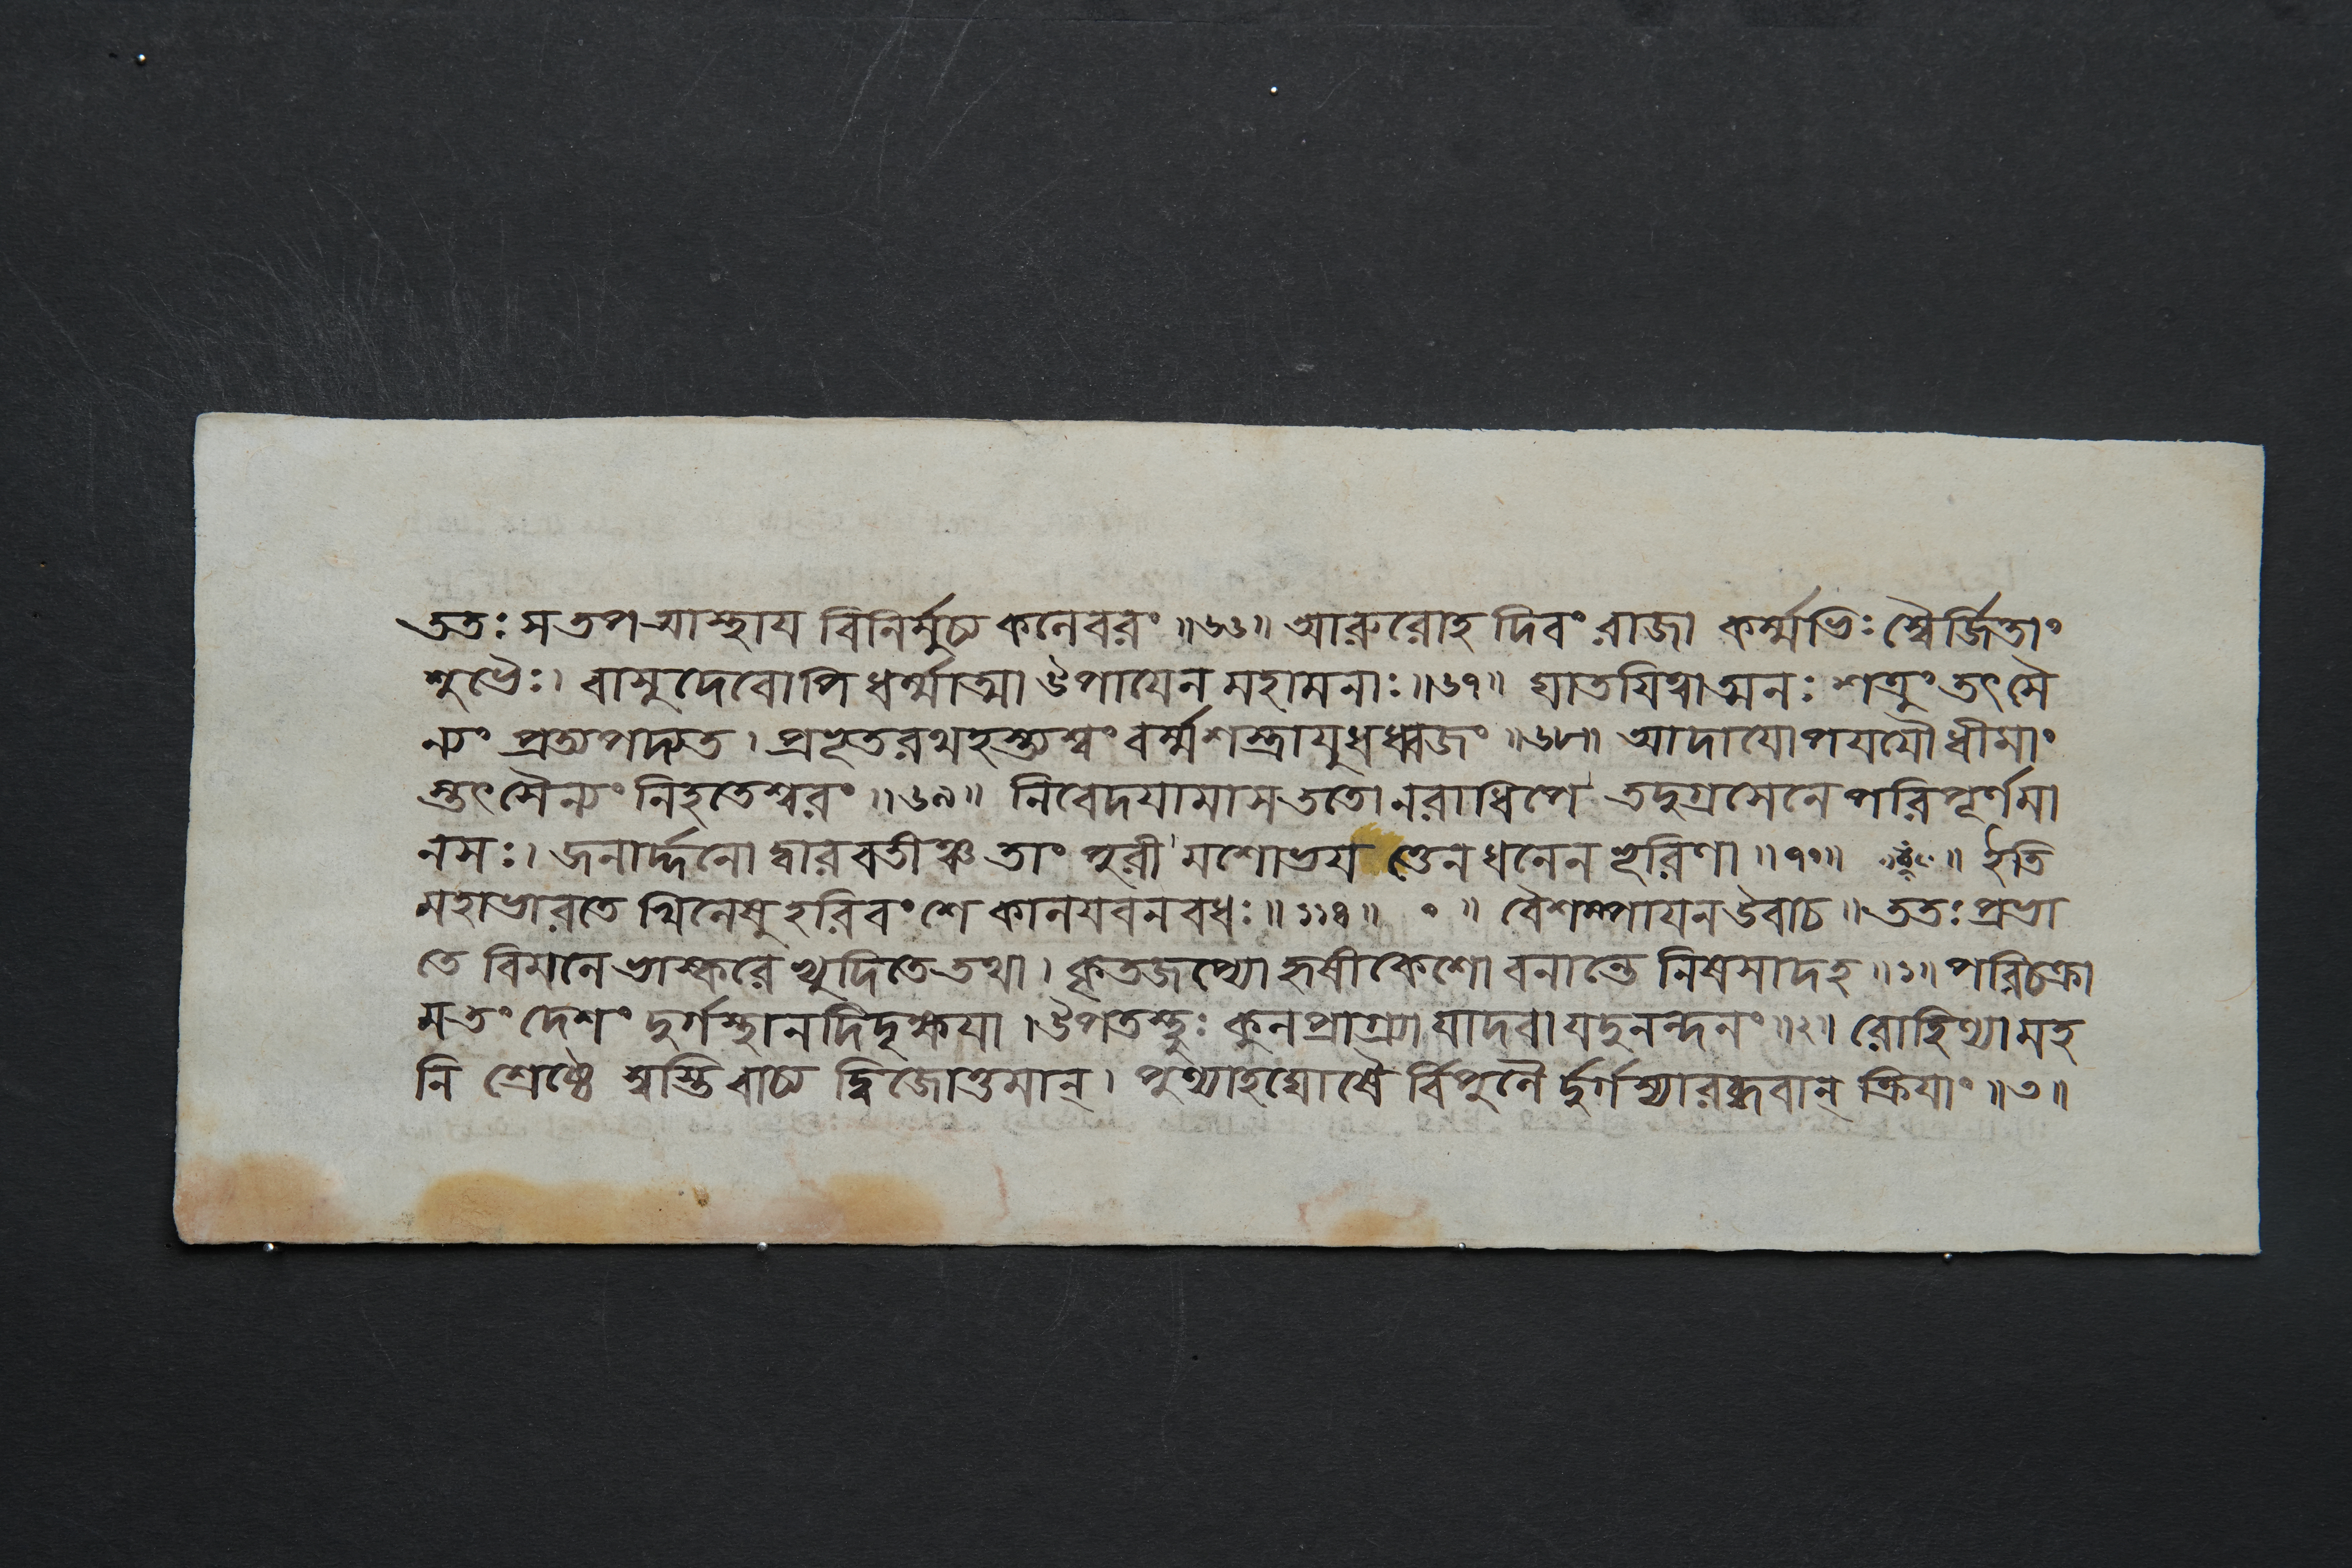 ততঃ স তপ আস্থায বিনির্মুচ্য কলেবরং ॥৬৬॥ আরুরোহ দিবং রাজা কর্ম্মভিঃ স্বৈর্জিতাং
শুভৈঃ। বাসুদেবোপি ধর্ম্মাত্মা উপাযেন মহামনাঃ॥৬৭॥ ঘাতযিত্বাত্মনঃ শত্রুং তৎসৈ
ন্যং প্রত্যপদ্যত। প্রভূতরথহস্ত্যশ্বং বর্ম্মশস্ত্রাযুধধ্বজং ॥৬৮॥ আদাযোপযযৌ ধীমাং
স্তৎসৈন্যং নিহতেশ্বরং ॥৬৯॥ নিবেদযামাস ততো নরাধিপে তদুগ্রসেনে পরিপূর্ণমা
নসঃ। জনার্দ্দনো দ্বারবতীঞ্চ তাং পুরী মশোভয ত্তেন ধনেন ভূরিণা ॥৭০॥ ॥ ইতি
মহাভারতে খিলেষু হরিবংশে কালযবনবধঃ॥১১৪॥ ০ ॥ বৈশম্পাযন উবাচ॥ ততঃ প্রভা
তে বিমলে ভাস্করে ভ্যুদিতে তথা। কৃতজপ্যো হৃষীকেশো বনান্তে নিষসাদহ ॥১॥ পরিচক্রা
ম তং দেশং দুর্গস্থানদিদৃক্ষযা। উপতস্থুঃ কুলপ্রাগ্র্যা যাদবা যদুনন্দনং ॥২॥ রোহিণ্যামহ
নি শ্রেষ্ঠে স্বস্তি বাচ্য দ্বিজোত্তমান্। পুণ্যাহঘোষৈ র্বিপুলৈ র্দুর্গস্যারব্ধবান্ ক্রিযাং ॥৩॥